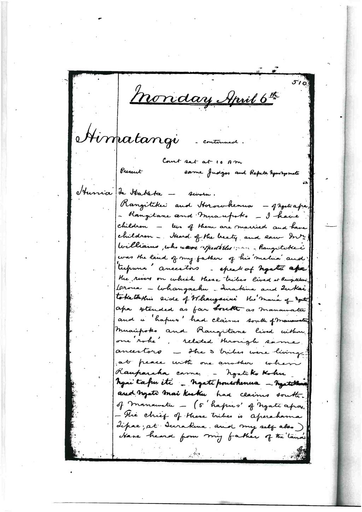 510
Monday April 6th
Himatangi continued
Court set at 10 AM
Present same Judges and
Hunia Te Hakeke - sworn.
Rangitikei and Horowhenua - of Ngati apa
- Rangitane and Muaupoko - I have
children - two of them are married and have
children - Heard of the treaty and saw Mr
Williams, who Rangitikei
was the land of my father of his 'matua' and
'tupuna' ancestors - speak of Ngati apa
the rivers on which these tribes lived
were - Whangaehu - Turakina and
side of Whanganui the 'Mana' of Ngati
apa extended as far South as Manawatu
and a 'hapu' had claims south of Manawatu
Muaupoko and Rangitane lived within
one 'rohe' - related through same
ancestors - The 3 tribes were living
at peace with one another when
Rauparaha came -
and had claims south
of Manawatu - (5 'hapus' of Ngati apa)
- The chief of these tribes is Aperahama
Tipae, at Turakina, and my self also)
Have heard from my father of the